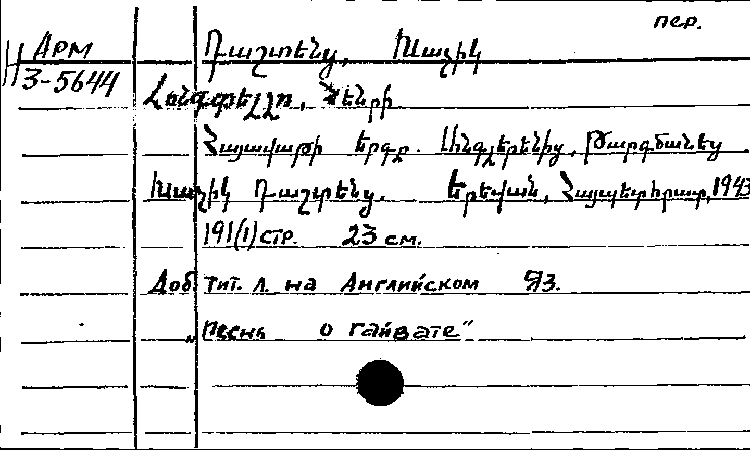 пер.
Арм Դաշտենց, Խաչիկ
3-5644
Լոնգֆելլո, Հենրի
Հայավաթի երգը. Անգլերենից, թարգմանեց
Խաչիկ Դաշտենց. Երեվան, Հայպետհրատ, 1943
191(1) стр. 23 см.
Доб. тит. л. на Английском яз.
„Песнь о гайвате"